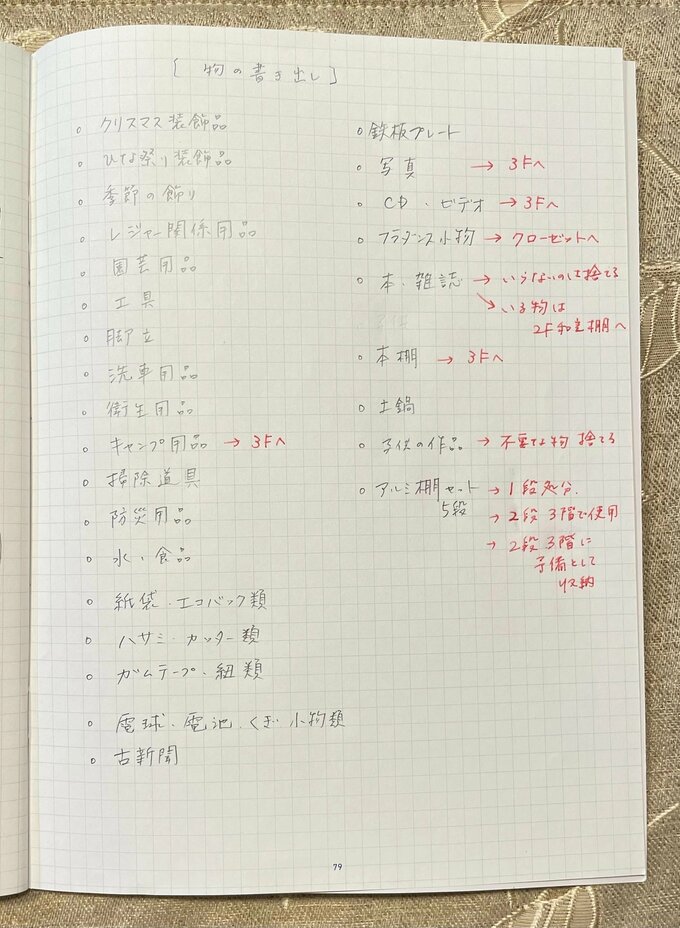 [ 物の書き出し ]
。クリスマス装飾品
。ひな祭り装飾品
。季節の飾り
。レジャー関係用品
。園芸用品
。工具
。脚立
。洗車用品
。衛生用品
。キャンプ用品 → 3Fへ
。掃除道具
。防災用品
。水、食品
。紙袋・エコバック類
。ハサミ・カッター類
。ガムテープ・紐類
。電球・電池・くぎ・小物類
。古新聞
。鉄板プレート
。写真 → 3Fへ
。CD・ビデオ → 3Fへ
。フラダンス小物 → クローゼットへ
。本・雑誌 → いらないのは捨てる
→ いる物は
2F和室棚へ
。本棚 → 3Fへ
。土鍋
。子供の作品 → 不要な物 捨てる
。アルミ棚セット → 1段処分.
5段
→ 2段 3階で使用
→ 2段 3階に
予備として
収納
79